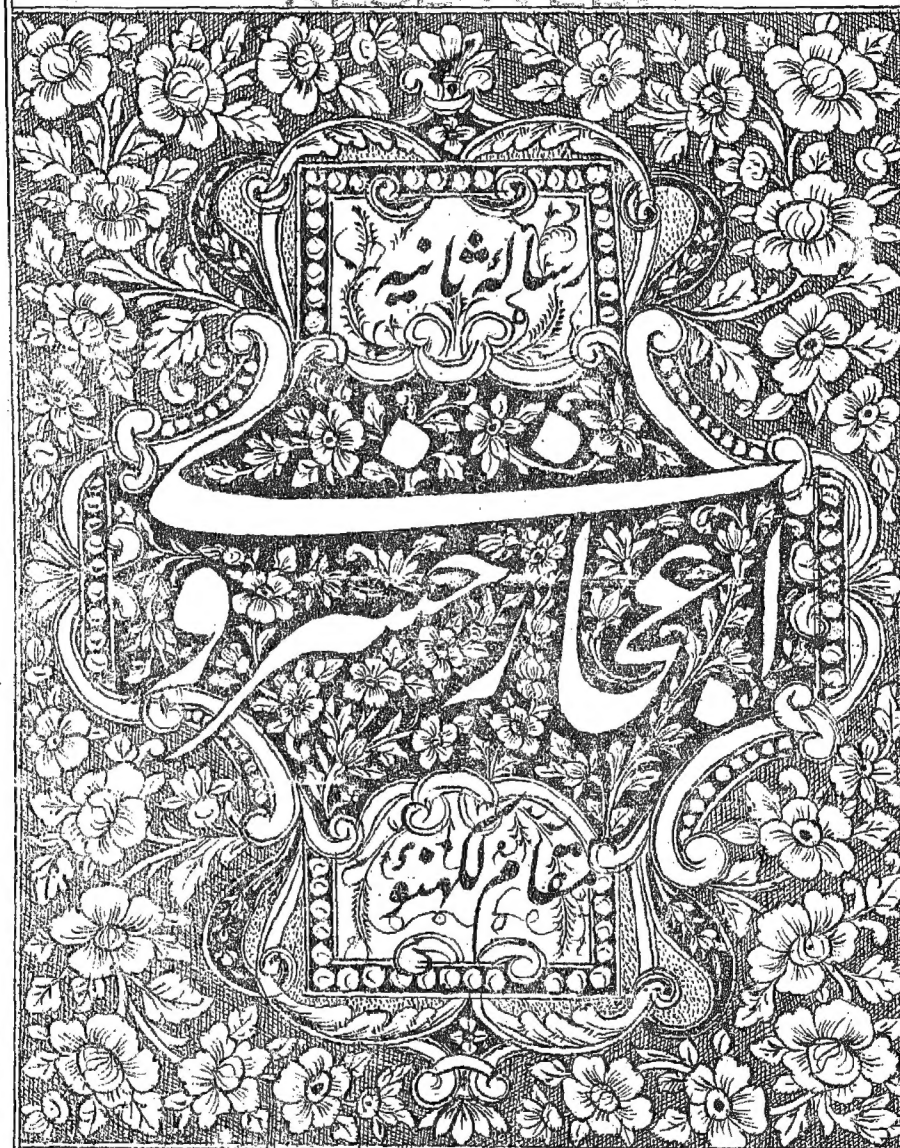 رسالۂ ثانیه
اعجاز خسروے
مقام لکهنؤ